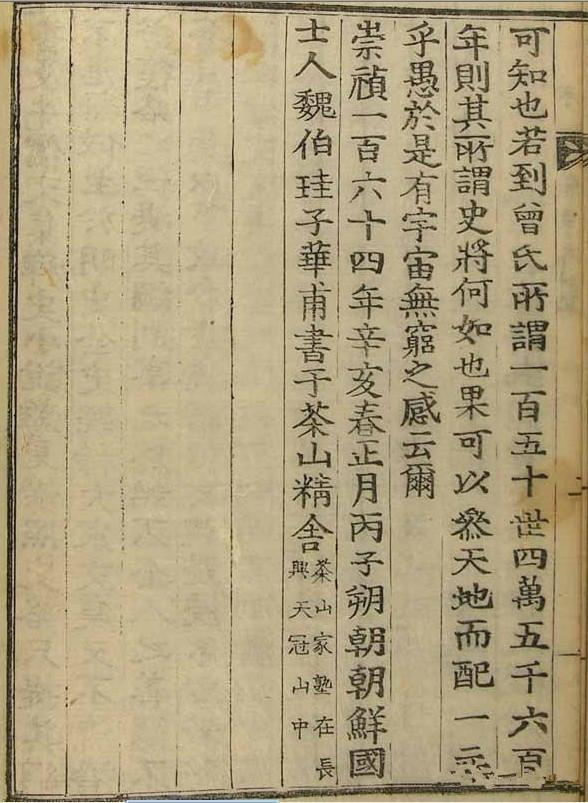 可知也若到曾氏所謂一百五十世四萬五千六百
年則其所謂史將何如也果可以叅天地而配一
乎愚於是有宇宙無窮之感云爾
崇禎一百六十四年辛亥春正月丙子朔朝朝鮮國
士人魏伯珪子華甫書于茶山精舍
茶山家塾在長
興天冠山中